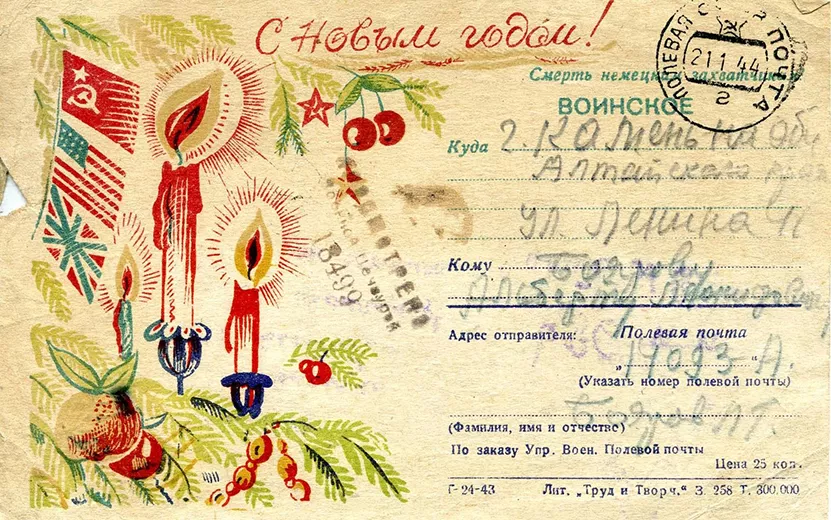 С Новым годом!
ПОЛЕВАЯ ПОЧТА
21 1 44
г
Смерть немецким захватчикам
ВОИНСКОЕ
Куда г. Камень на Оби
Алтайского
ул. Ленина
ПРОСМОТРЕНО
Военной Цензурой
18499
Кому
Адрес отправителя: Полевая почта
А.
(Указать номер полевой почты)
(Фамилия, имя и отчество)
По заказу Упр. Воен. Полевой почты
Цена 25 коп.
Г-24-43 Лит. „Труд и Творч.“ З. 258 Т. 300.000